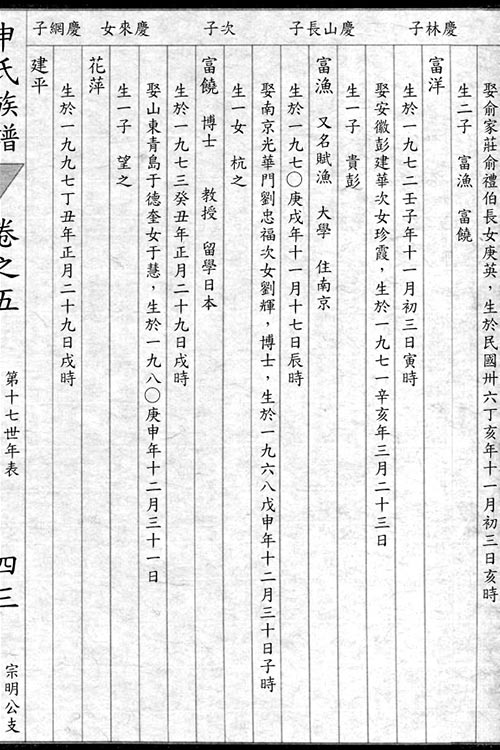 娶俞家莊俞禮伯長女庚英，生於民國卅六丁亥年十一月初三日亥時
生二子 富漁 富饒
慶林子
富洋
生於一九七二壬子年十一月初三日寅時
娶安徽彭建華次女珍霞，生於一九七一辛亥年三月二十三日
生一子 貴彭
慶山長子
富漁 又名賦漁 大學 住南京
生於一九七〇庚戌年十一月十七日辰時
娶南京光華門劉忠福次女劉輝，博士，生於一九六八戊申年十二月三十日子時
生一女 杭之
次子
富饒 博士 教授 留學日本
生於一九七三癸丑年正月二十九日戌時
娶山東青島于德奎女于慧，生於一九八〇庚申年十二月三十一日
生一子 望之
慶來女
花萍
生於一九九七丁丑年正月二十九日戌時
慶網子
建平
申氏族譜 卷之五 第十七世年表 四三 宗明公支